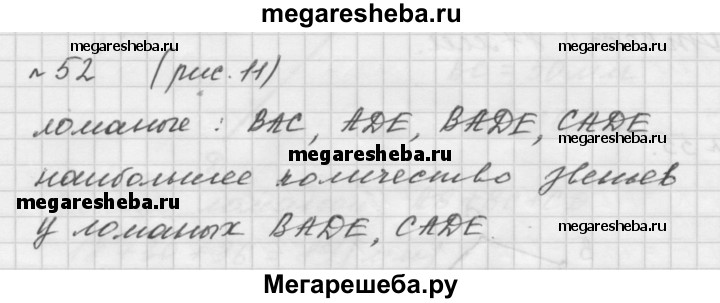 megaresheba.ru
megaresheba.ru
№ 52 (рис. 11)
megaresheba.ru
megaresheba.ru
ломаные : ВАС, ADE, BADE, CADE
megaresheba.ru
наибольшее количество звеньев
megaresheba.ru
у ломаных BADE, CADE.
megaresheba.ru
Мегарешеба.ру